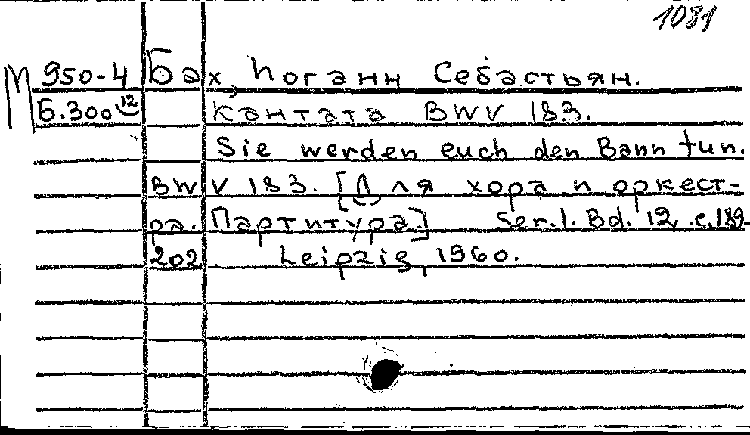 1081
М 950-4 Бах, Иоганн Себастьян.
Б.300 12 Кантата BWV 183.
Sie werden euch den Bann tun.
BWV 183. [Для хора и оркест-
ра. Партитура.] Ser.I. Bd. 12, с.189-
202. Leipzig, 1960.